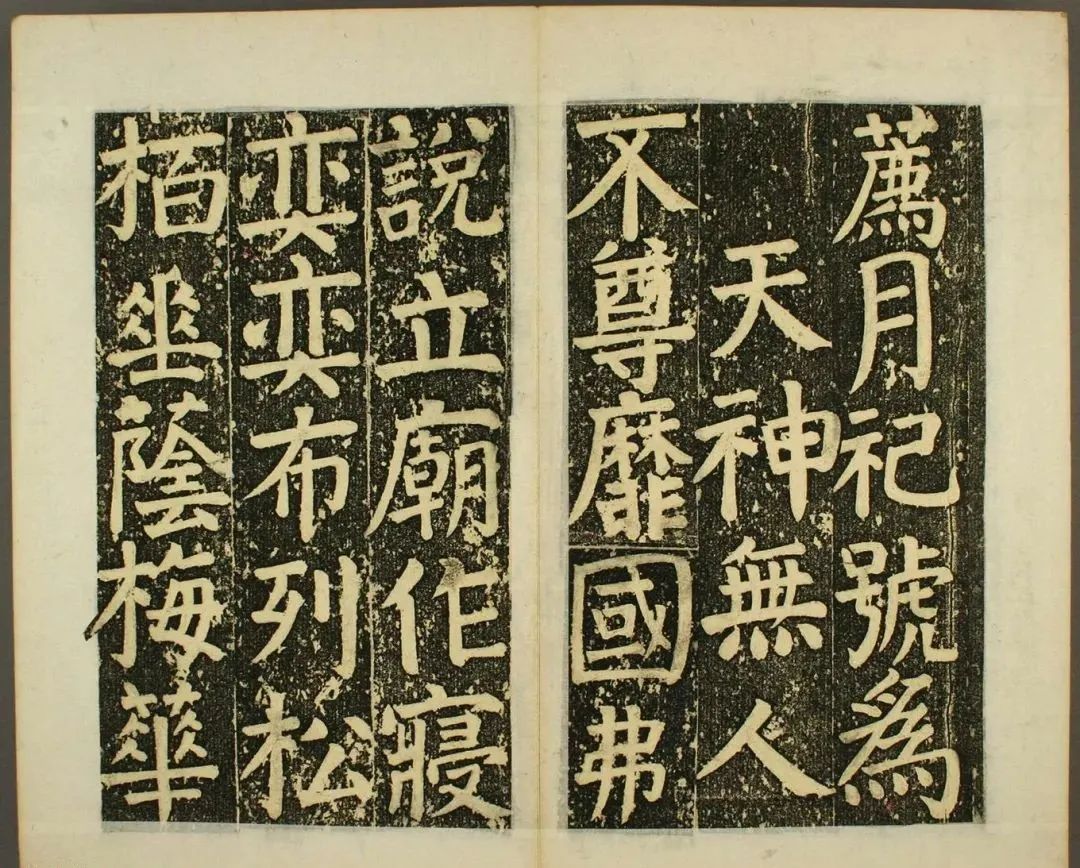 薦月祀號爲
天神無人
不尊靡國弗
說立廟作寢
奕奕布列松
栢垂蔭梅華